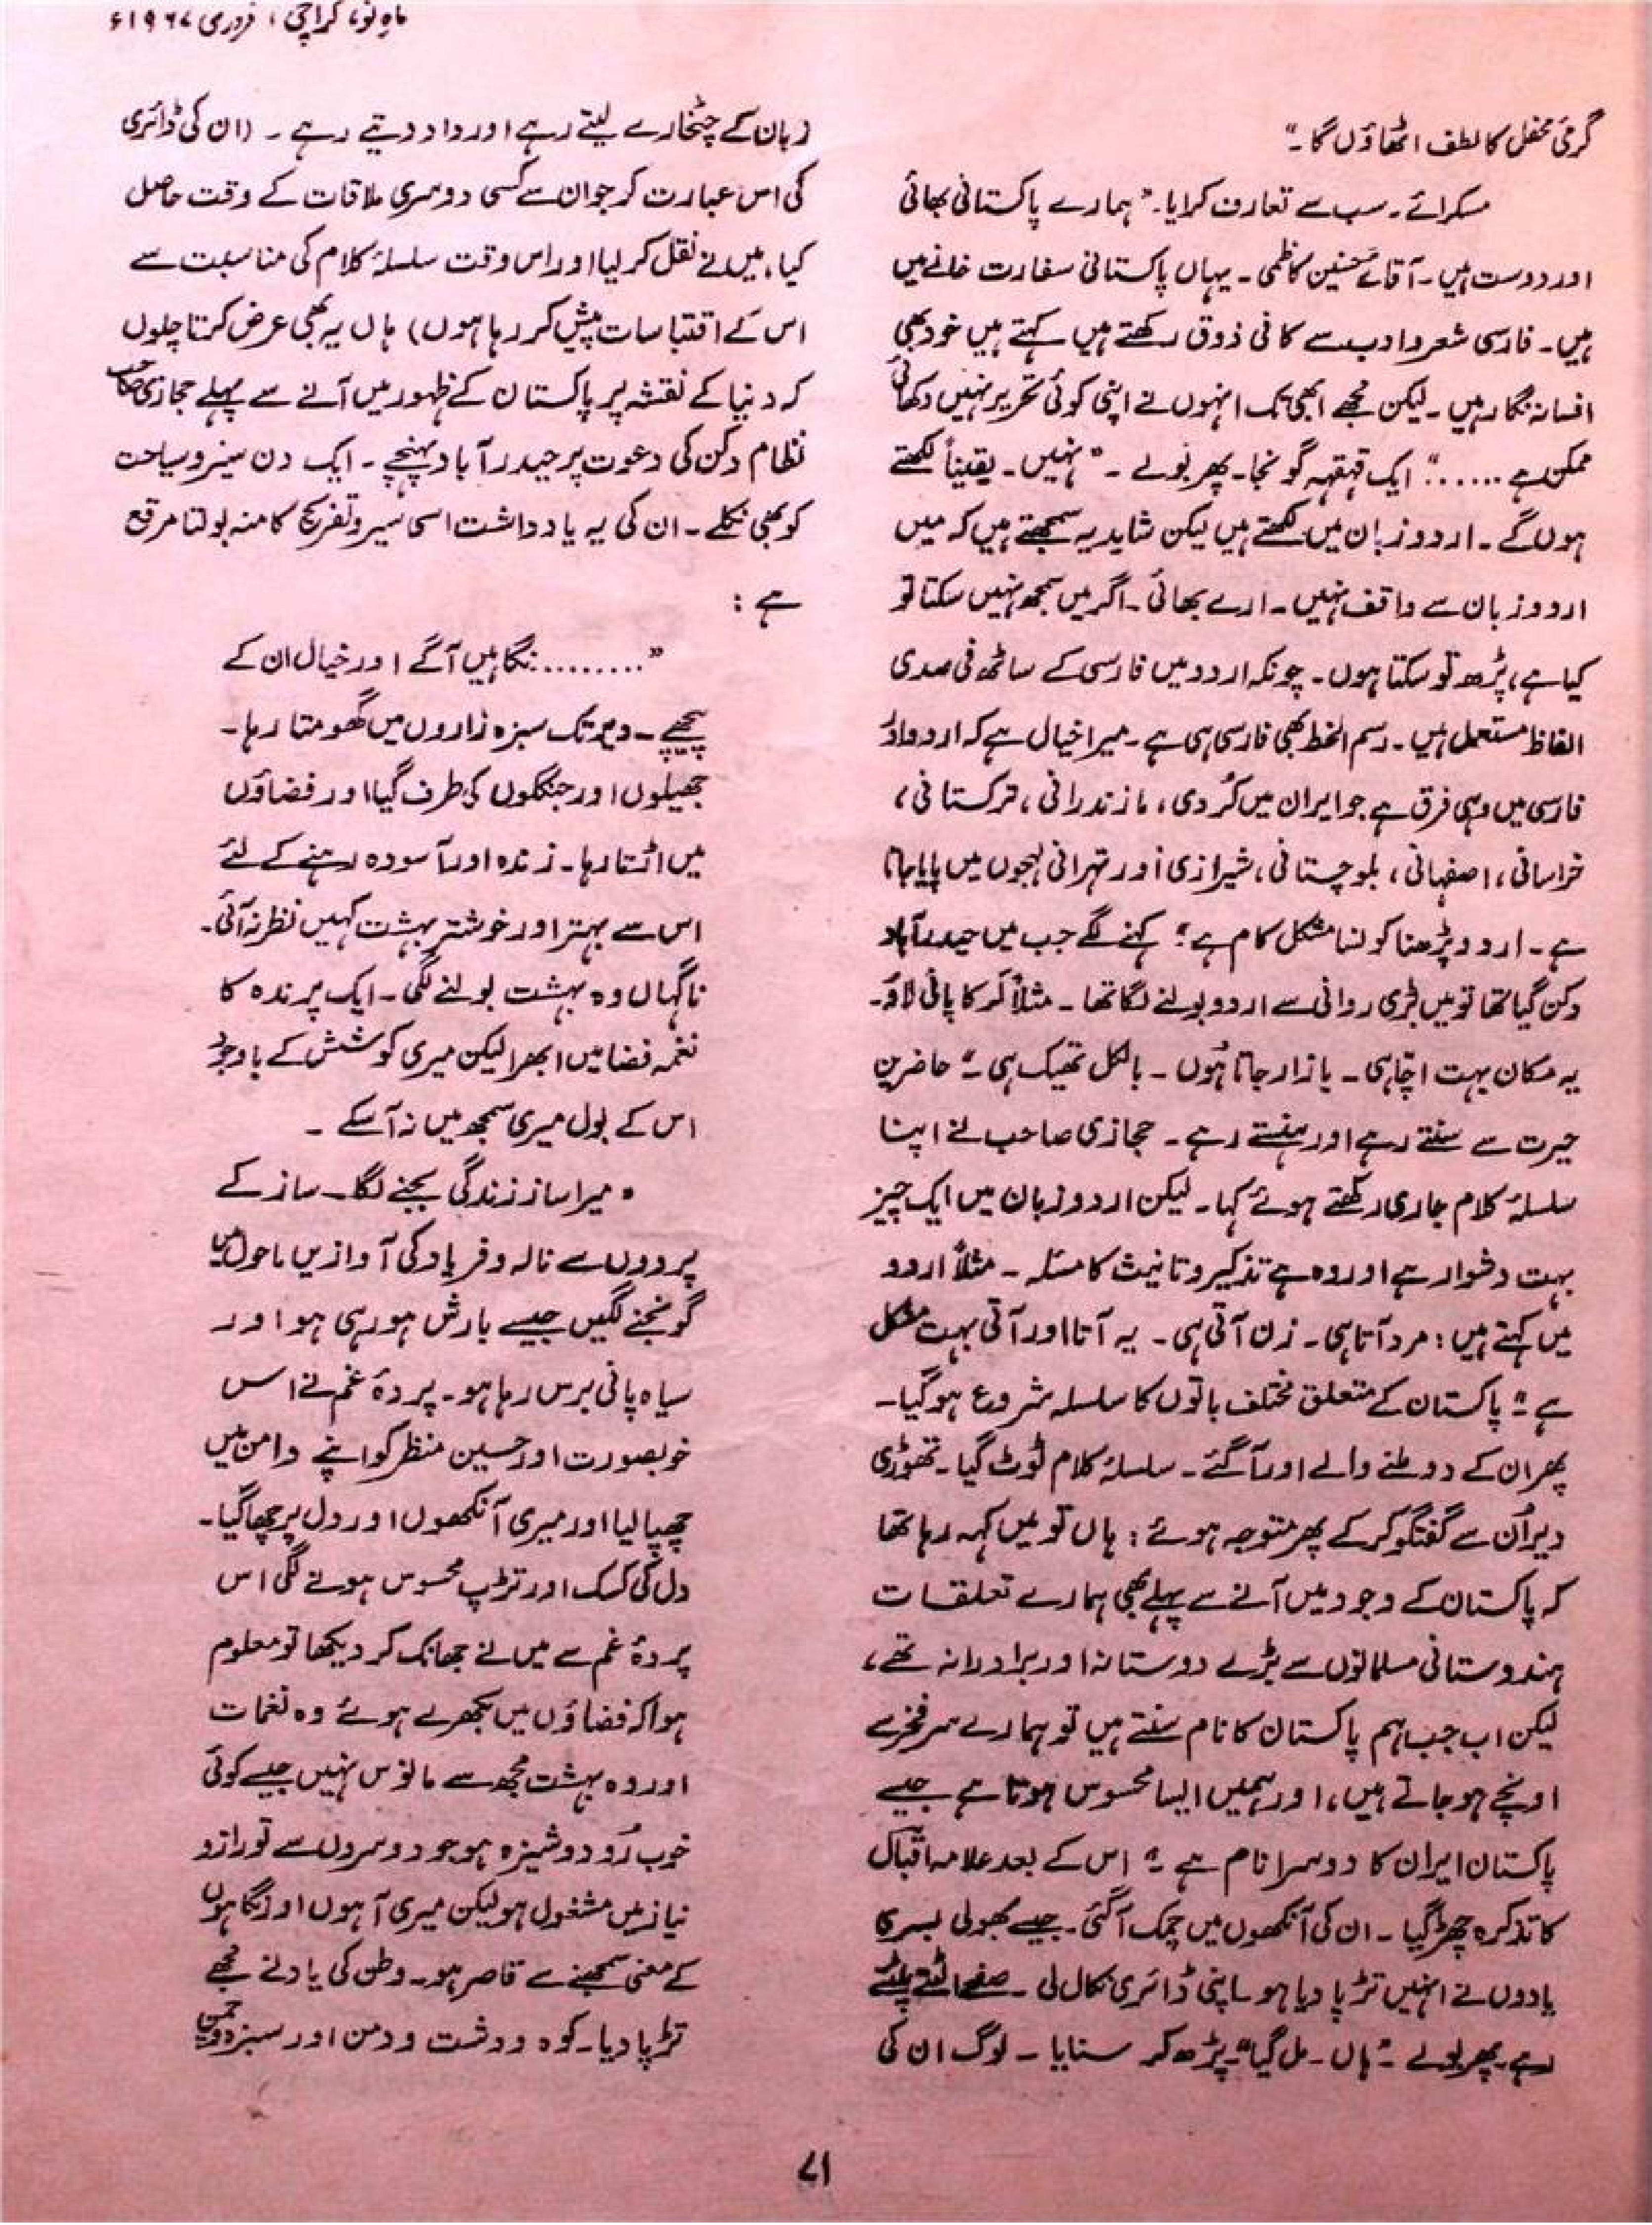 ماہِ نو، کراچی، فروری ۱۹۶۷ء
گرمیٔ محفل کا لطف اٹھاؤں گا۔"
مسکرائے۔ سب سے تعارف کرایا۔ "ہمارے پاکستانی بھائی
اور دوست ہیں۔ آقائے حسنین کاظمی۔ یہاں پاکستانی سفارت خانے میں
ہیں۔ فارسی شعر و ادب سے کافی ذوق رکھتے ہیں کہتے ہیں خود بھی
افسانہ نگار ہیں۔ لیکن مجھے ابھی تک انہوں نے اپنی کوئی تحریر نہیں دکھائی
ممکن ہے ......" ایک قہقہہ گونجا۔ پھر بولے۔ "نہیں۔ یقیناً لکھتے
ہوں گے۔ اردو زبان میں لکھتے ہیں لیکن شاید یہ سمجھتے ہیں کہ میں
اردو زبان سے واقف نہیں۔ ارے بھائی۔ اگر میں سمجھ نہیں سکتا تو
کیا ہے، پڑھ تو سکتا ہوں۔ چونکہ اردو میں فارسی کے ساٹھ فی صدی
الفاظ مستعمل ہیں۔ رسم الخط بھی فارسی ہی ہے۔ میرا خیال ہے کہ اردو اور
فارسی میں وہی فرق ہے جو ایران میں کُردی، مازندرانی، ترکستانی،
خراسانی، اصفہانی، بلوچستانی، شیرازی اور تہرانی لہجوں میں پایا جاتا
ہے۔ اردو پڑھنا کونسا مشکل کام ہے" کہنے لگے جب میں حیدرآباد
دکن گیا تھا تو میں بڑی روانی سے اردو بولنے لگا تھا۔ مثلاً گرَم پانی لاؤ۔
یہ مکان بہت اچّا ہی۔ بازار جاتا ہُوں۔ بالکل تھیک ہی۔" حاضرین
حیرت سے سنتے رہے اور ہنستے رہے۔ حجازی صاحب نے اپنا
سلسلۂ کلام جاری رکھتے ہوئے کہا۔ لیکن اردو زبان میں ایک چیز
بہت دشوار ہے اور وہ ہے تذکیر و تانیث کا مسئلہ۔ مثلاً اردو
میں کہتے ہیں: مرد آتا ہی۔ زن آتی ہی۔ یہ آتا اور آتی بہت مشکل
ہے۔" پاکستان کے متعلق مختلف باتوں کا سلسلہ شروع ہو گیا۔
پھر ان کے دو ملنے والے اور آ گئے۔ سلسلۂ کلام ٹوٹ گیا۔ تھوڑی
دیر اُن سے گفتگو کر کے پھر متوجہ ہوئے: ہاں تو میں کہہ رہا تھا
کہ پاکستان کے وجود میں آنے سے پہلے بھی ہمارے تعلقات
ہندوستانی مسلمانوں سے بڑے دوستانہ اور برادرانہ تھے،
لیکن اب جب ہم پاکستان کا نام سنتے ہیں تو ہمارے سر فخر سے
اونچے ہو جاتے ہیں، اور ہمیں ایسا محسوس ہوتا ہے جیسے
پاکستان ایران کا دوسرا نام ہے۔" اس کے بعد علامہ اقبال
کا تذکرہ چھڑ گیا۔ ان کی آنکھوں میں چمک آ گئی۔ جیسے بھولی بسری
یادوں نے انہیں تڑپا دیا ہو اپنی ڈائری نکال لی۔ صفحے الٹتے پلٹتے
رہے۔ پھر بولے۔ "ہاں۔ مل گیا" پڑھ کر سنایا۔ لوگ ان کی
زبان کے چٹخارے لیتے رہے اور داد دیتے رہے۔ (ان کی ڈائری
کی اس عبارت کو جو ان سے کسی دوسری ملاقات کے وقت حاصل
کیا، میں نے نقل کر لیا اور اس وقت سلسلۂ کلام کی مناسبت سے
اس کے اقتباسات پیش کر رہا ہوں) ہاں یہ بھی عرض کرتا چلوں
کہ دنیا کے نقشہ پر پاکستان کے ظہور میں آنے سے پہلے حجازی صاحب
نظام دکن کی دعوت پر حیدر آباد پہنچے۔ ایک دن سیر و سیاحت
کو بھی نکلے۔ ان کی یہ یادداشت اسی سیر و تفریح کا منہ بولتا مرقع
ہے:
"......... نگاہیں آگے اور خیال ان کے
پیچھے۔ دیر تک سبزہ زاروں میں گھومتا رہا۔
جھیلوں اور جنگلوں کی طرف گیا اور فضاؤں
میں اڑتا رہا۔ زندہ اور آسودہ رہنے کے لئے
اس سے بہتر اور خوشتر بہشت کہیں نظر نہ آئی۔
ناگہاں وہ بہشت بولنے لگی۔ ایک پرندہ کا
نغمہ فضا میں ابھرا لیکن میری کوشش کے باوجود
اس کے بول میری سمجھ میں نہ آ سکے۔
"میرا ساز زندگی بجنے لگا۔ ساز کے
پردوں سے نالہ و فریاد کی آوازیں ماحول میں
گونجنے لگیں جیسے بارش ہو رہی ہو اور
سیاہ پانی برس رہا ہو۔ پردۂ غم نے اس
خوبصورت اور حسین منظر کو اپنے دامن میں
چھپا لیا اور میری آنکھوں اور دل پر چھا گیا۔
دل کی کسک اور تڑپ محسوس ہونے لگی اس
پردۂ غم سے میں نے جھانک کر دیکھا تو معلوم
ہوا کہ فضاؤں میں بکھرے ہوئے وہ نغمات
اور وہ بہشت مجھ سے مانوس نہیں جیسے کوئی
خوب رُو دوشیزہ ہو جو دوسروں سے تو راز و
نیاز میں مشغول ہو لیکن میری آہوں اور نگاہوں
کے معنی سمجھنے سے قاصر ہو۔ وطن کی یاد نے مجھے
تڑپا دیا۔ کوہ و دشت و دمن اور سبزہ و چمن
۷۱